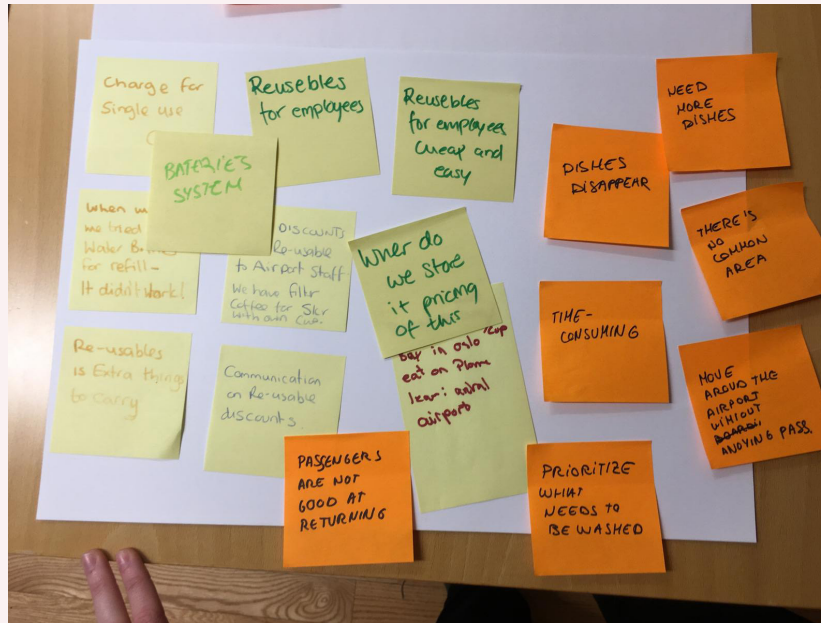 Charge for
Single use
Reusebles
for employees
Reusebles
for employees
Cheap and
easy
NEED
MORE
DISHES
BATERIE'S
SYSTEM
DISHES
DISAPPEAR
When
we tried
Water
for refill-
It didn't work!
DISCOUNTS
Re-usable
to Airport Staff
We have filtr
Coffee for 5kr
with own Cup.
Wher do
we store
it pricing
of this
THERE'S
NO
COMMON
AREA
TIME-
CONSUMING
Re-usables
is Extra things
to carry
Communication
on Re-usable
discounts.
in oslo
eat on Plane
airport
MOVE
AROUD THE
AIRPORT
WIHIOUT
ANOYING PASS.
PASSENGERS
ARE NOT
GOOD AT
RETURNING
PRIORITIZE
WHAT
NEEDS TO
BE WASHED